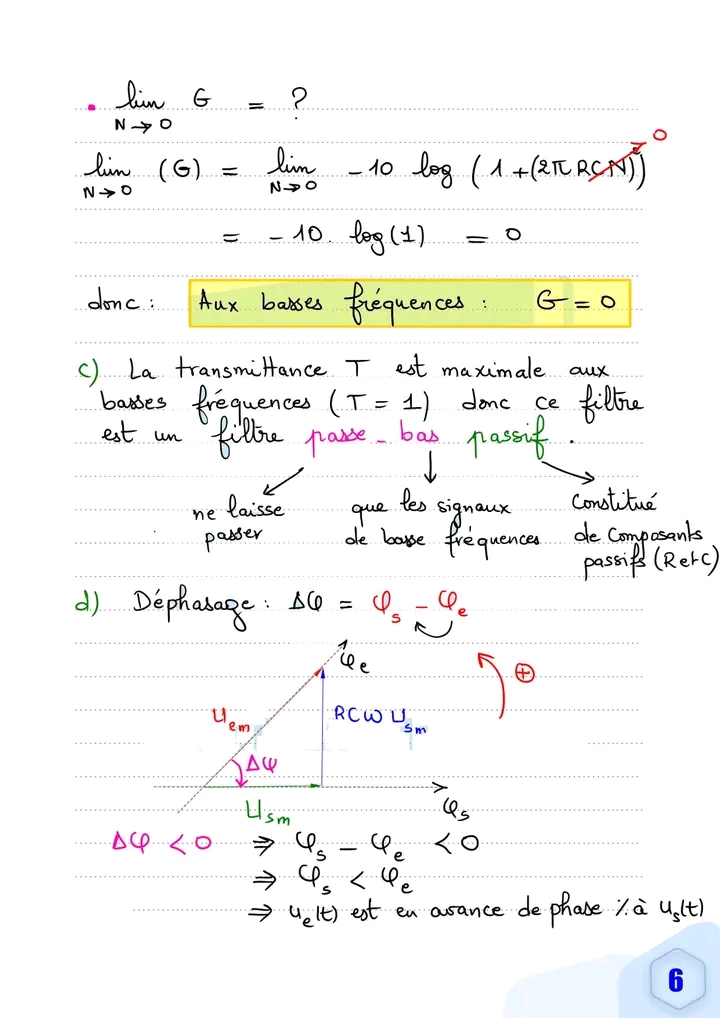 • lim G = ?
N→0
lim (G) = lim -10 log (1+(2π RCN)²) 0
N→0 N→0
= -10. log(1) = 0
donc : Aux basses fréquences : G = 0
c) La transmittance T est maximale aux
basses fréquences (T = 1) donc ce filtre
est un filtre passe-bas passif.
ne laisse que les signaux Constitué
passer de basse fréquences de composants
passifs (R et C)
d) Déphasage : Δφ = φs - φe
φe
⊕
Uem RCω Usm
Δφ
Usm φs
Δφ < 0 ⇒ φs - φe < 0
⇒ φs < φe
⇒ ue(t) est en avance de phase % à us(t)
6